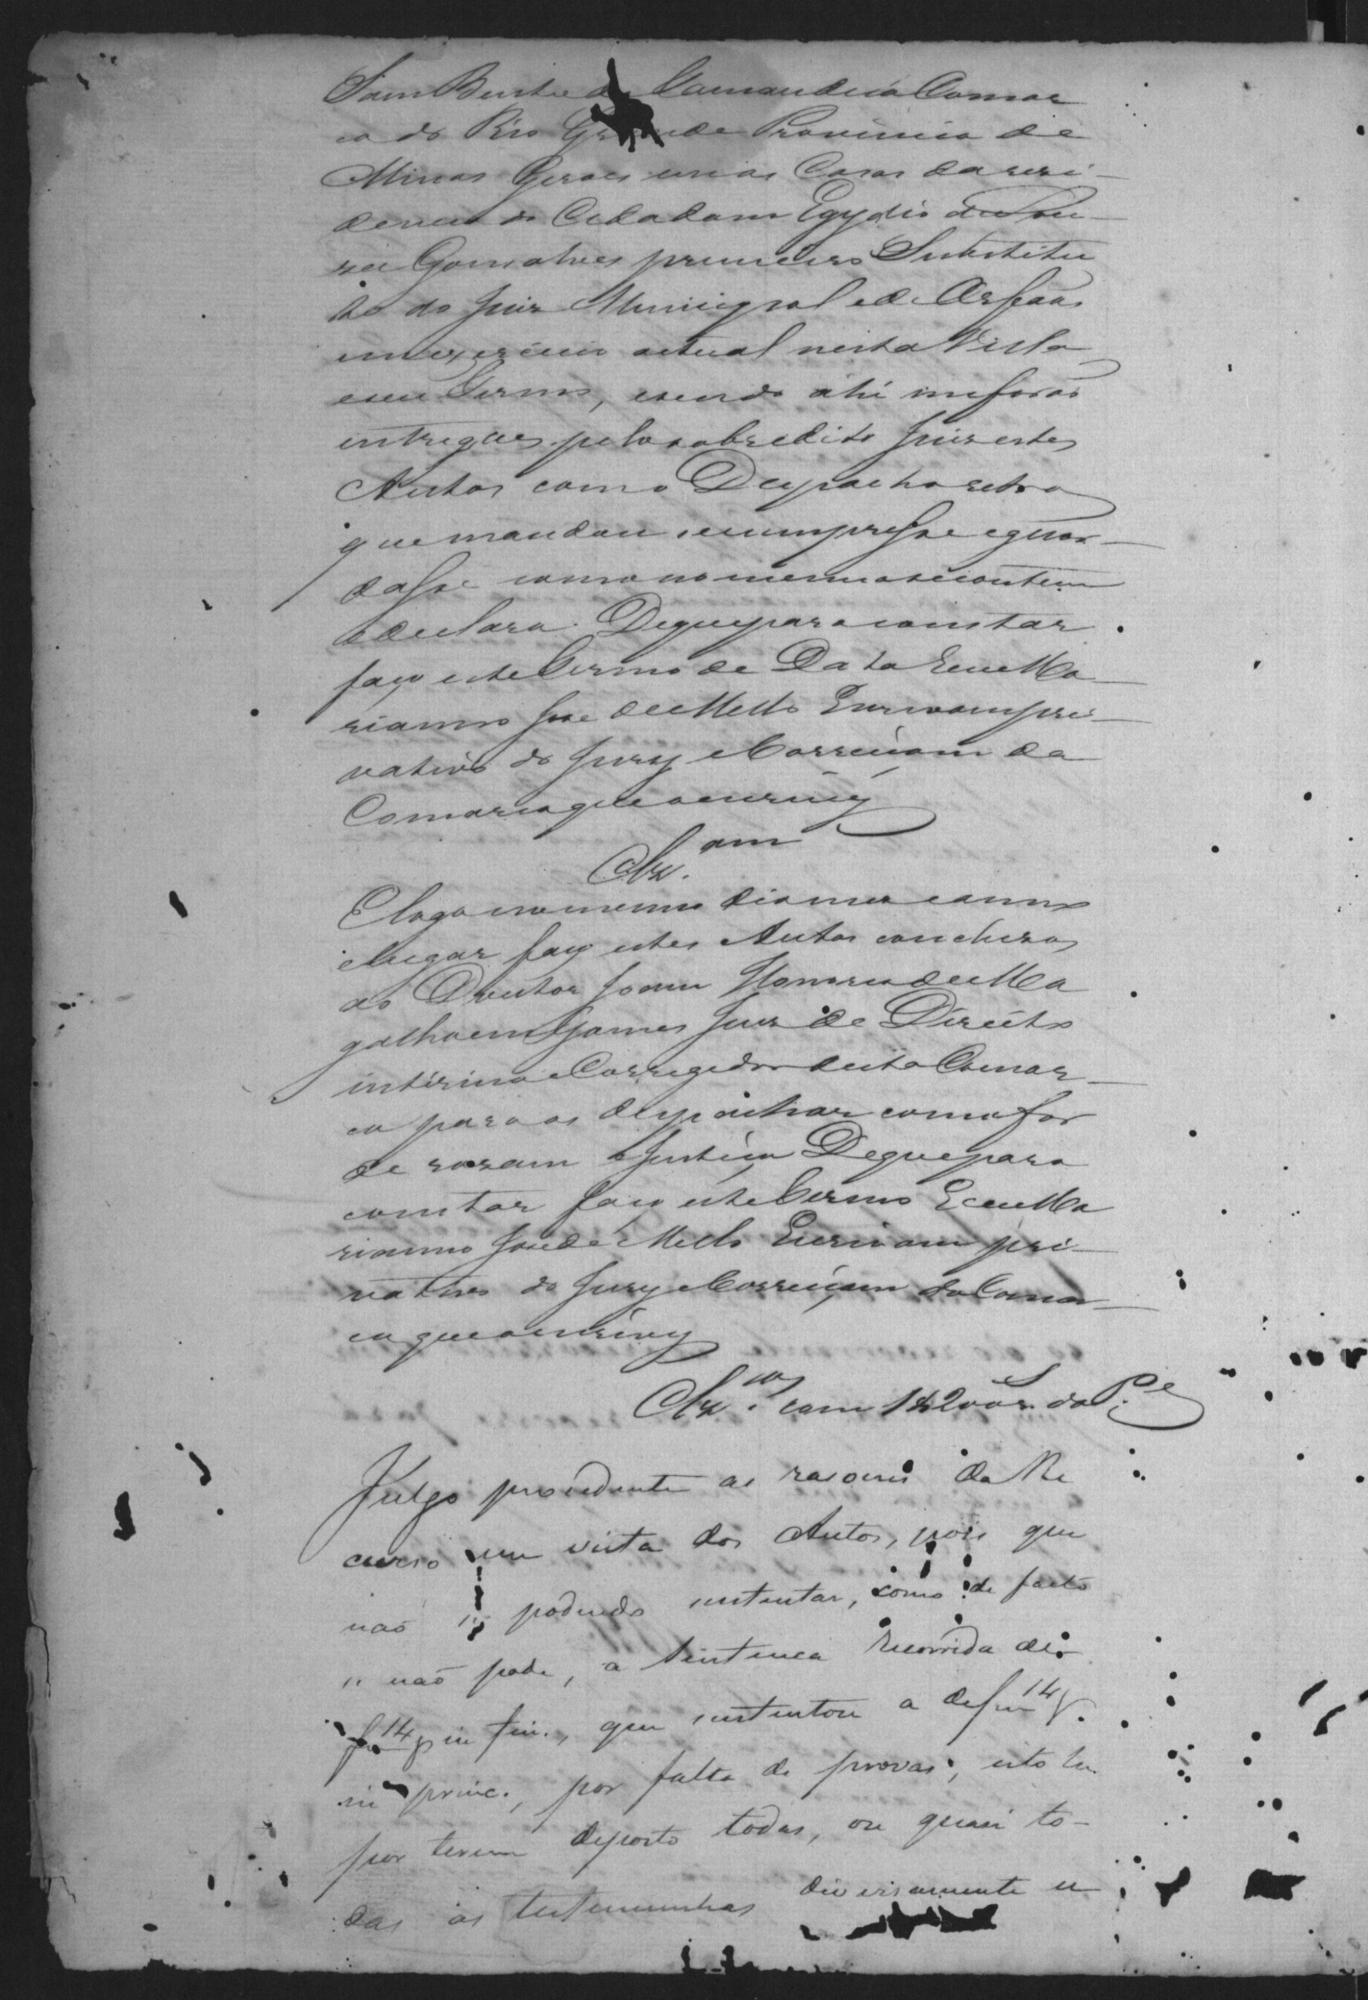 Sam Bento de Tamanduá Comar
ca do Rio Grande Provincia de
Minas Geraes em as Casas da rezi-
dencia do Cidadam Egydio de Sou-
za Gonsalves primeiro Substitu
to do Juiz Municipal e de Orfaõs
em exercicio actual nesta Villa
e seu Termo, e sendo ahi me foraõ
entregues pelo sobredito Juiz estes
Autos com o Despacho retro
que mandou se cumprisse e guar-
dasse como no mesmo se contem
e declara. De que para constar
faço este Termo de Data Eu Ma-
rianno Jose de Mello Escrivam pri-
vativo do Jury e Correiçam da
Comarca que o escrevy
Clz.am
E logo no mesmo dia mes e anno
e lugar faço estes Autos concluzos
ao Doutor Joam Honorio de Ma
galhaens Gomes Juiz de Direito
interino e Corregedor desta Comar-
ca para os despachar como for
de rezam e Justiça De que para
constar faço este Termo E eu Ma
rianno Jose de Mello Escrivam pri-
vativo do Jury e Correiçam da Comar-
ca que o escrevy
Clz.os com 1$200 rs. do P.e
Julgo procedente as rasoens do Re
curso em vista dos Autos, pois que
naõ se podendo sustentar, como de facto
se naõ pode, a Sentença recorrida de
f. 14 in fin., que sustentou a de f. 14
in princ., por falta de provas, isto he
por terem deposto todas, ou quasi to-
das as testemunhas diversamente